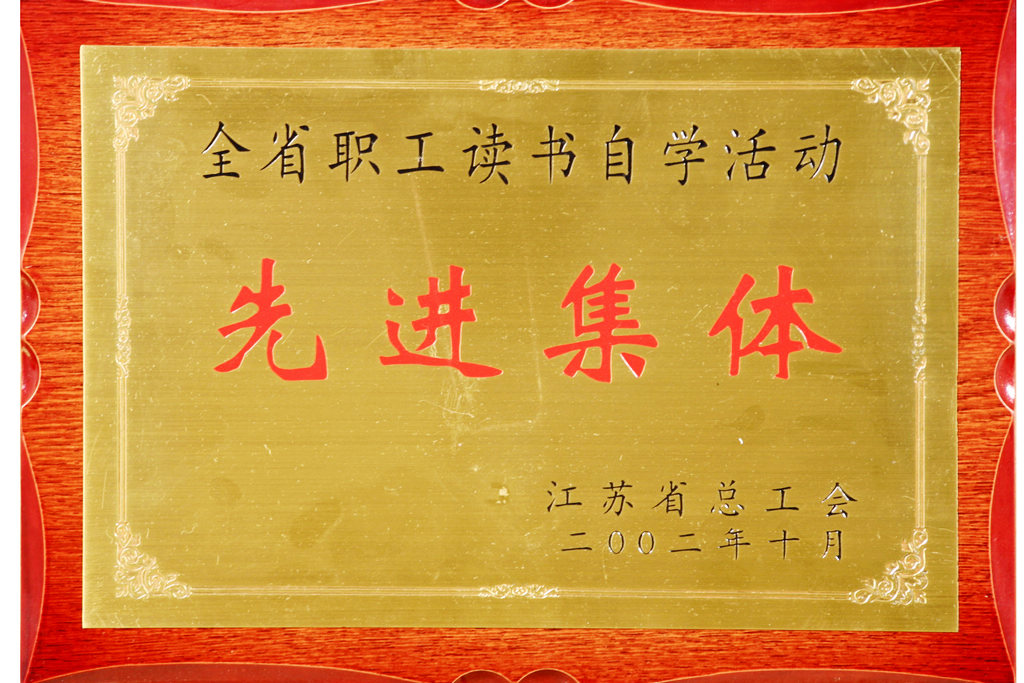 全省职工读书自学活动
先进集体
江苏省总工会
二00二年十月